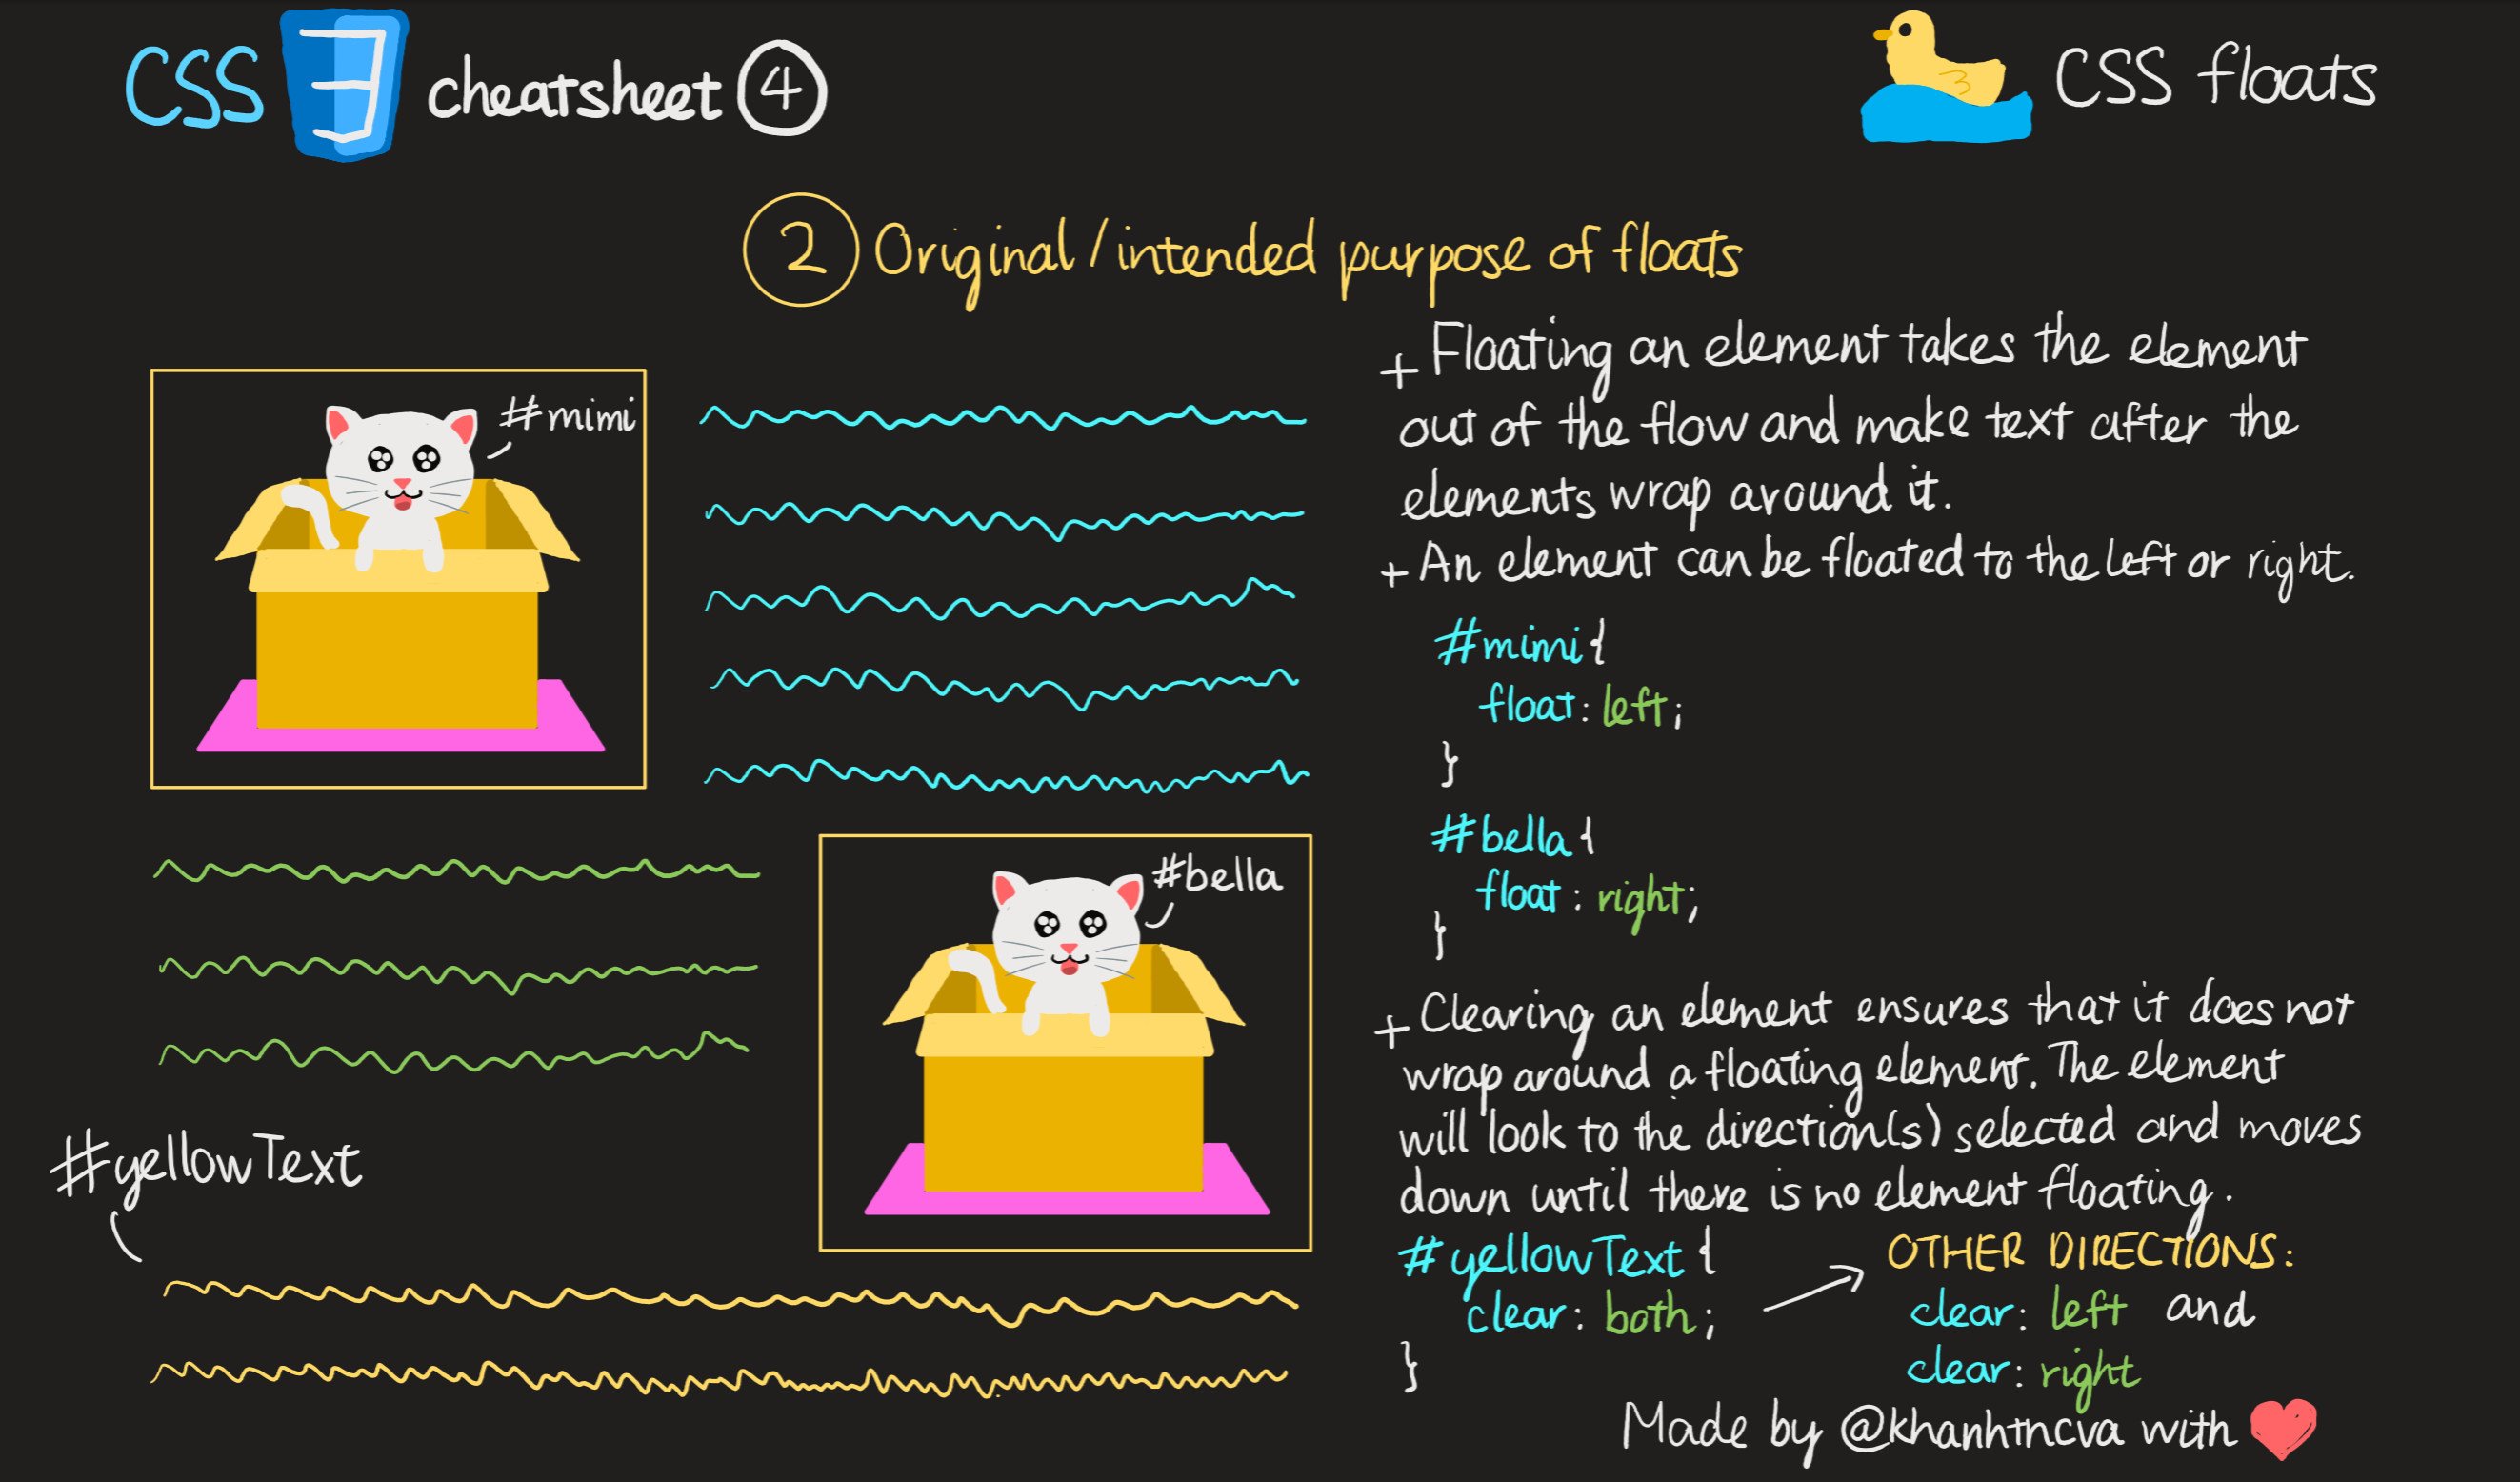 CSS 3 cheatsheet 4
CSS floats
2 Original/intended purpose of floats
#mimi
#bella
#yellowText
+ Floating an element takes the element
out of the flow and make text after the
elements wrap around it.
+ An element can be floated to the left or right.
#mimi {
float: left;
}
#bella {
float: right;
}
+ Clearing an element ensures that it does not
wrap around a floating element. The element
will look to the direction(s) selected and moves
down until there is no element floating.
#yellowText {
clear: both;
}
OTHER DIRECTIONS:
clear: left and
clear: right
Made by @khanhtncva with